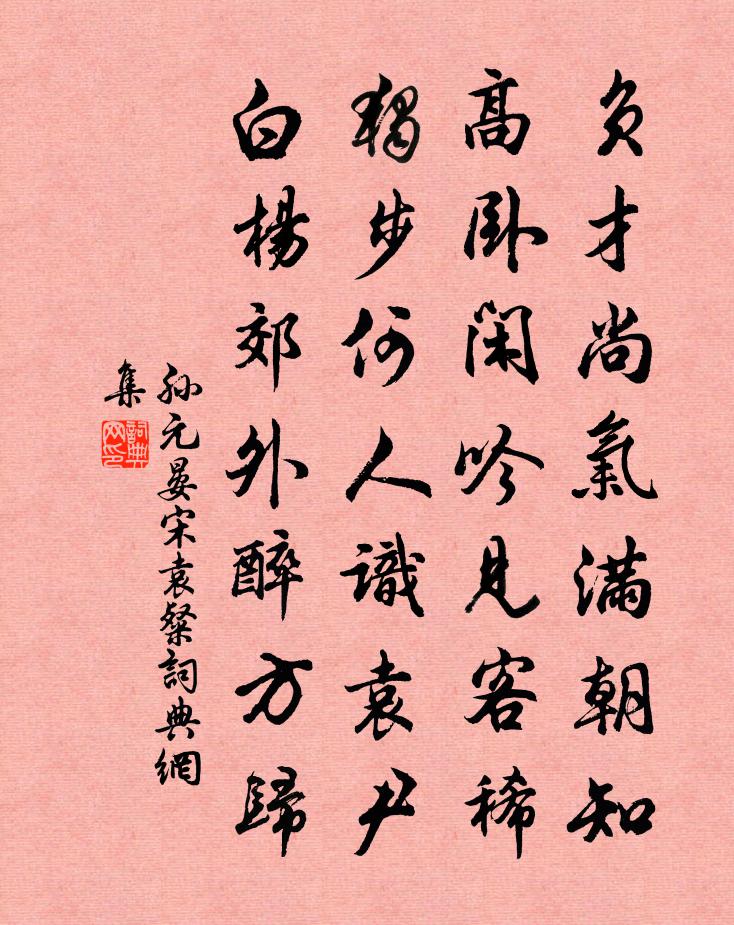 負才尚氣滿朝知
高臥閑吟見客稀
獨步何人識袁尹
白楊郊外醉方歸
孫元晏宋袁粲詞典網
集
詞典
网印